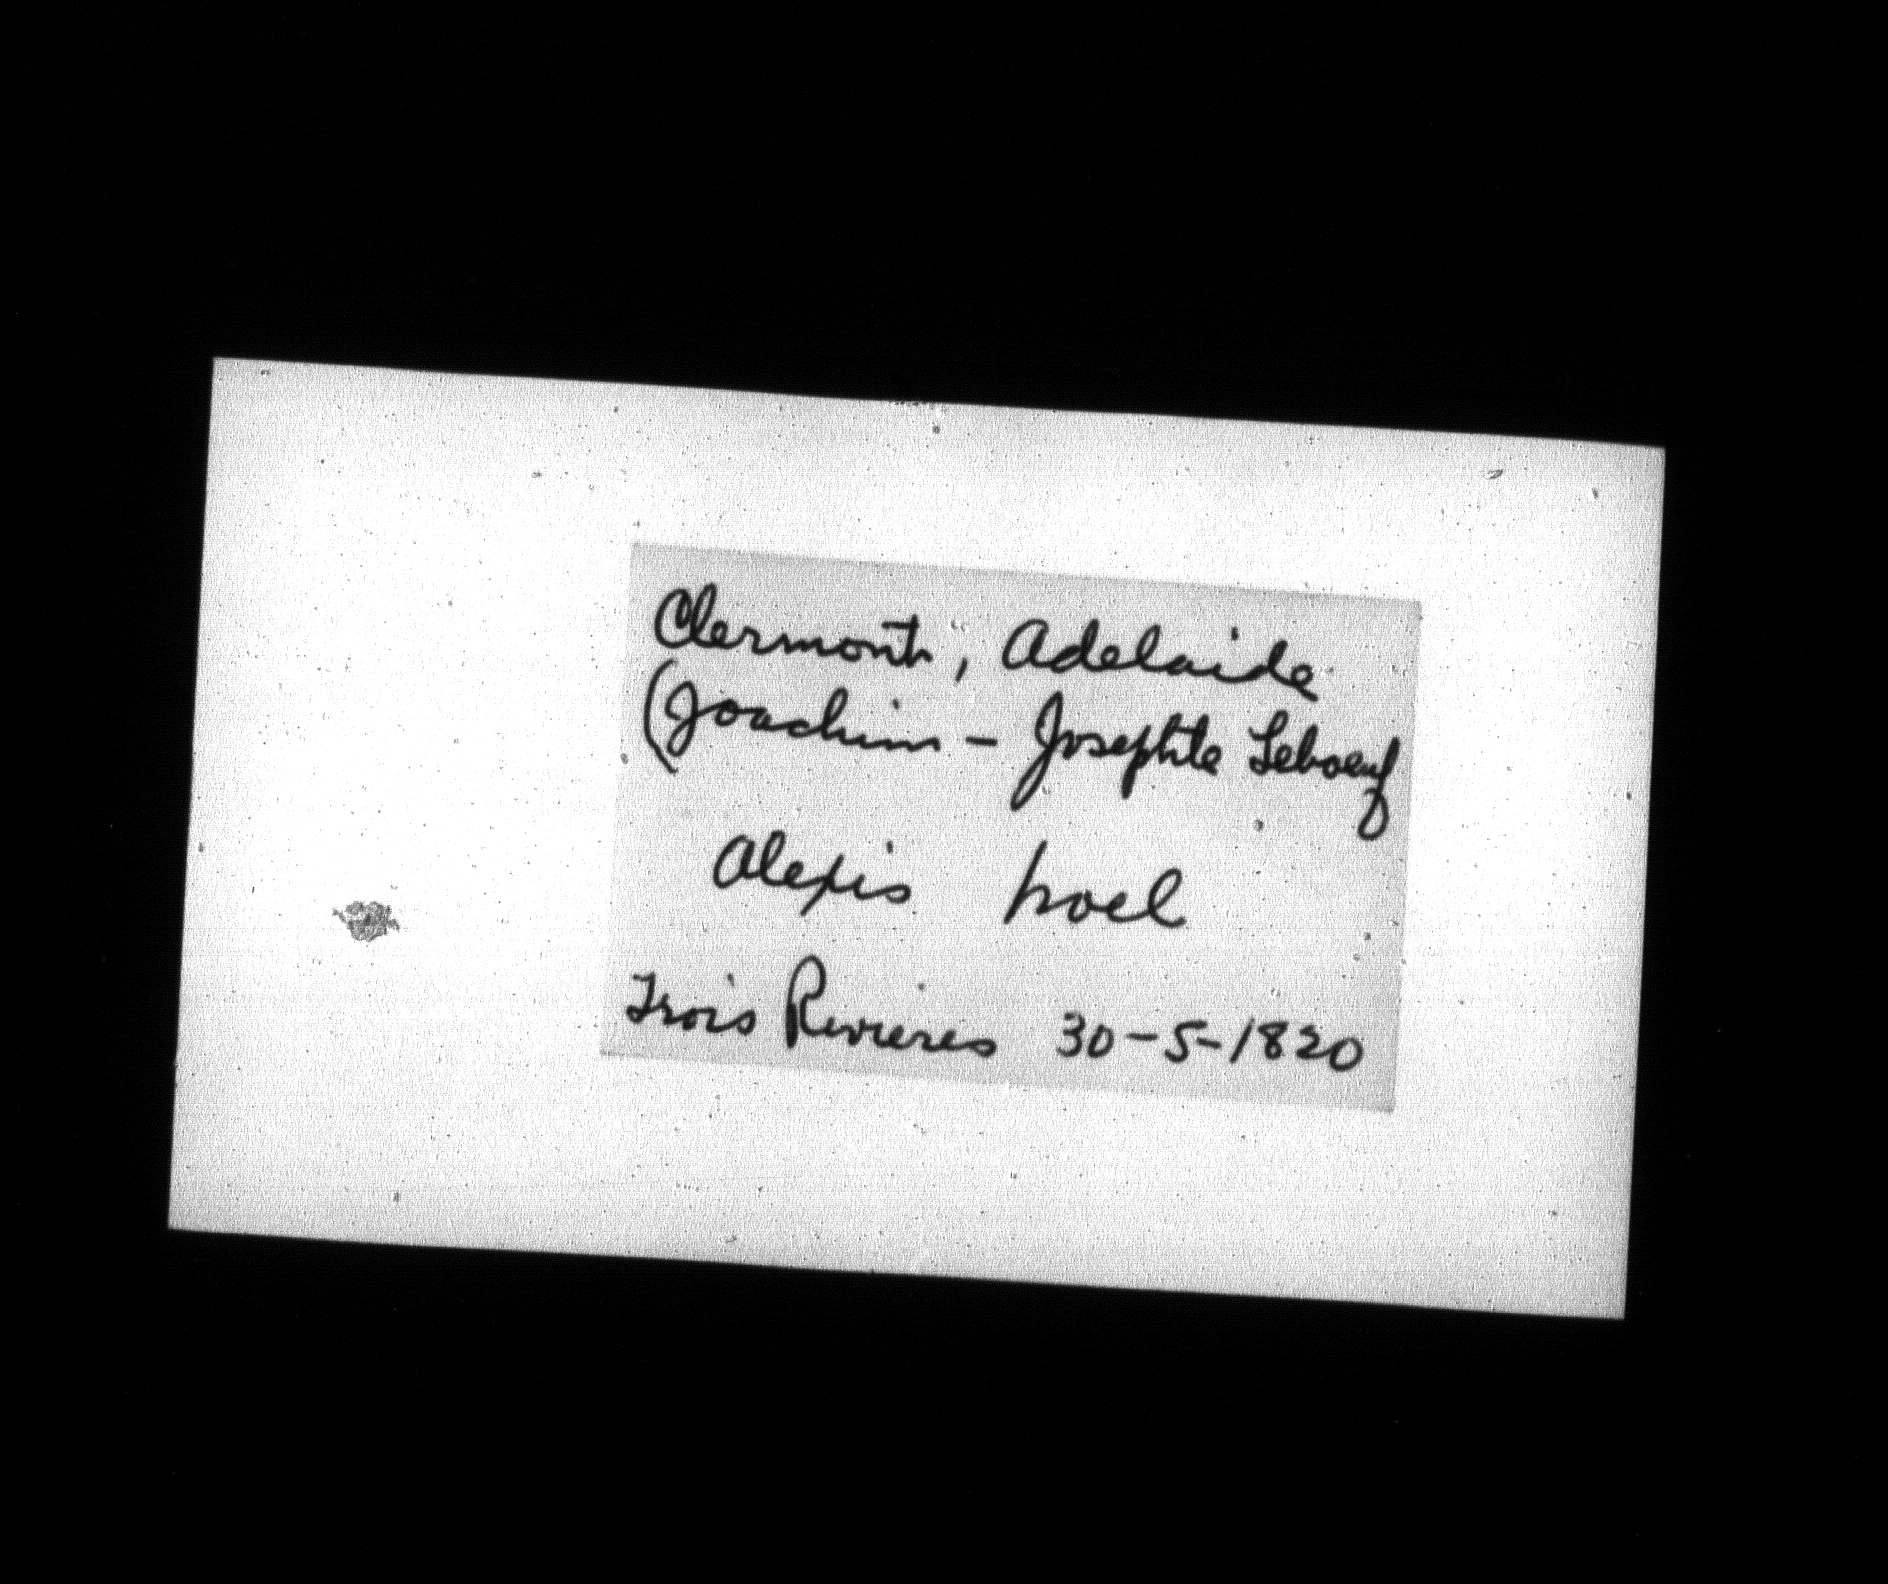 Clermont, Adelaide
(Joachim - Josephte Leboeuf
Alexis Noel
Trois Rivieres 30-5-1820